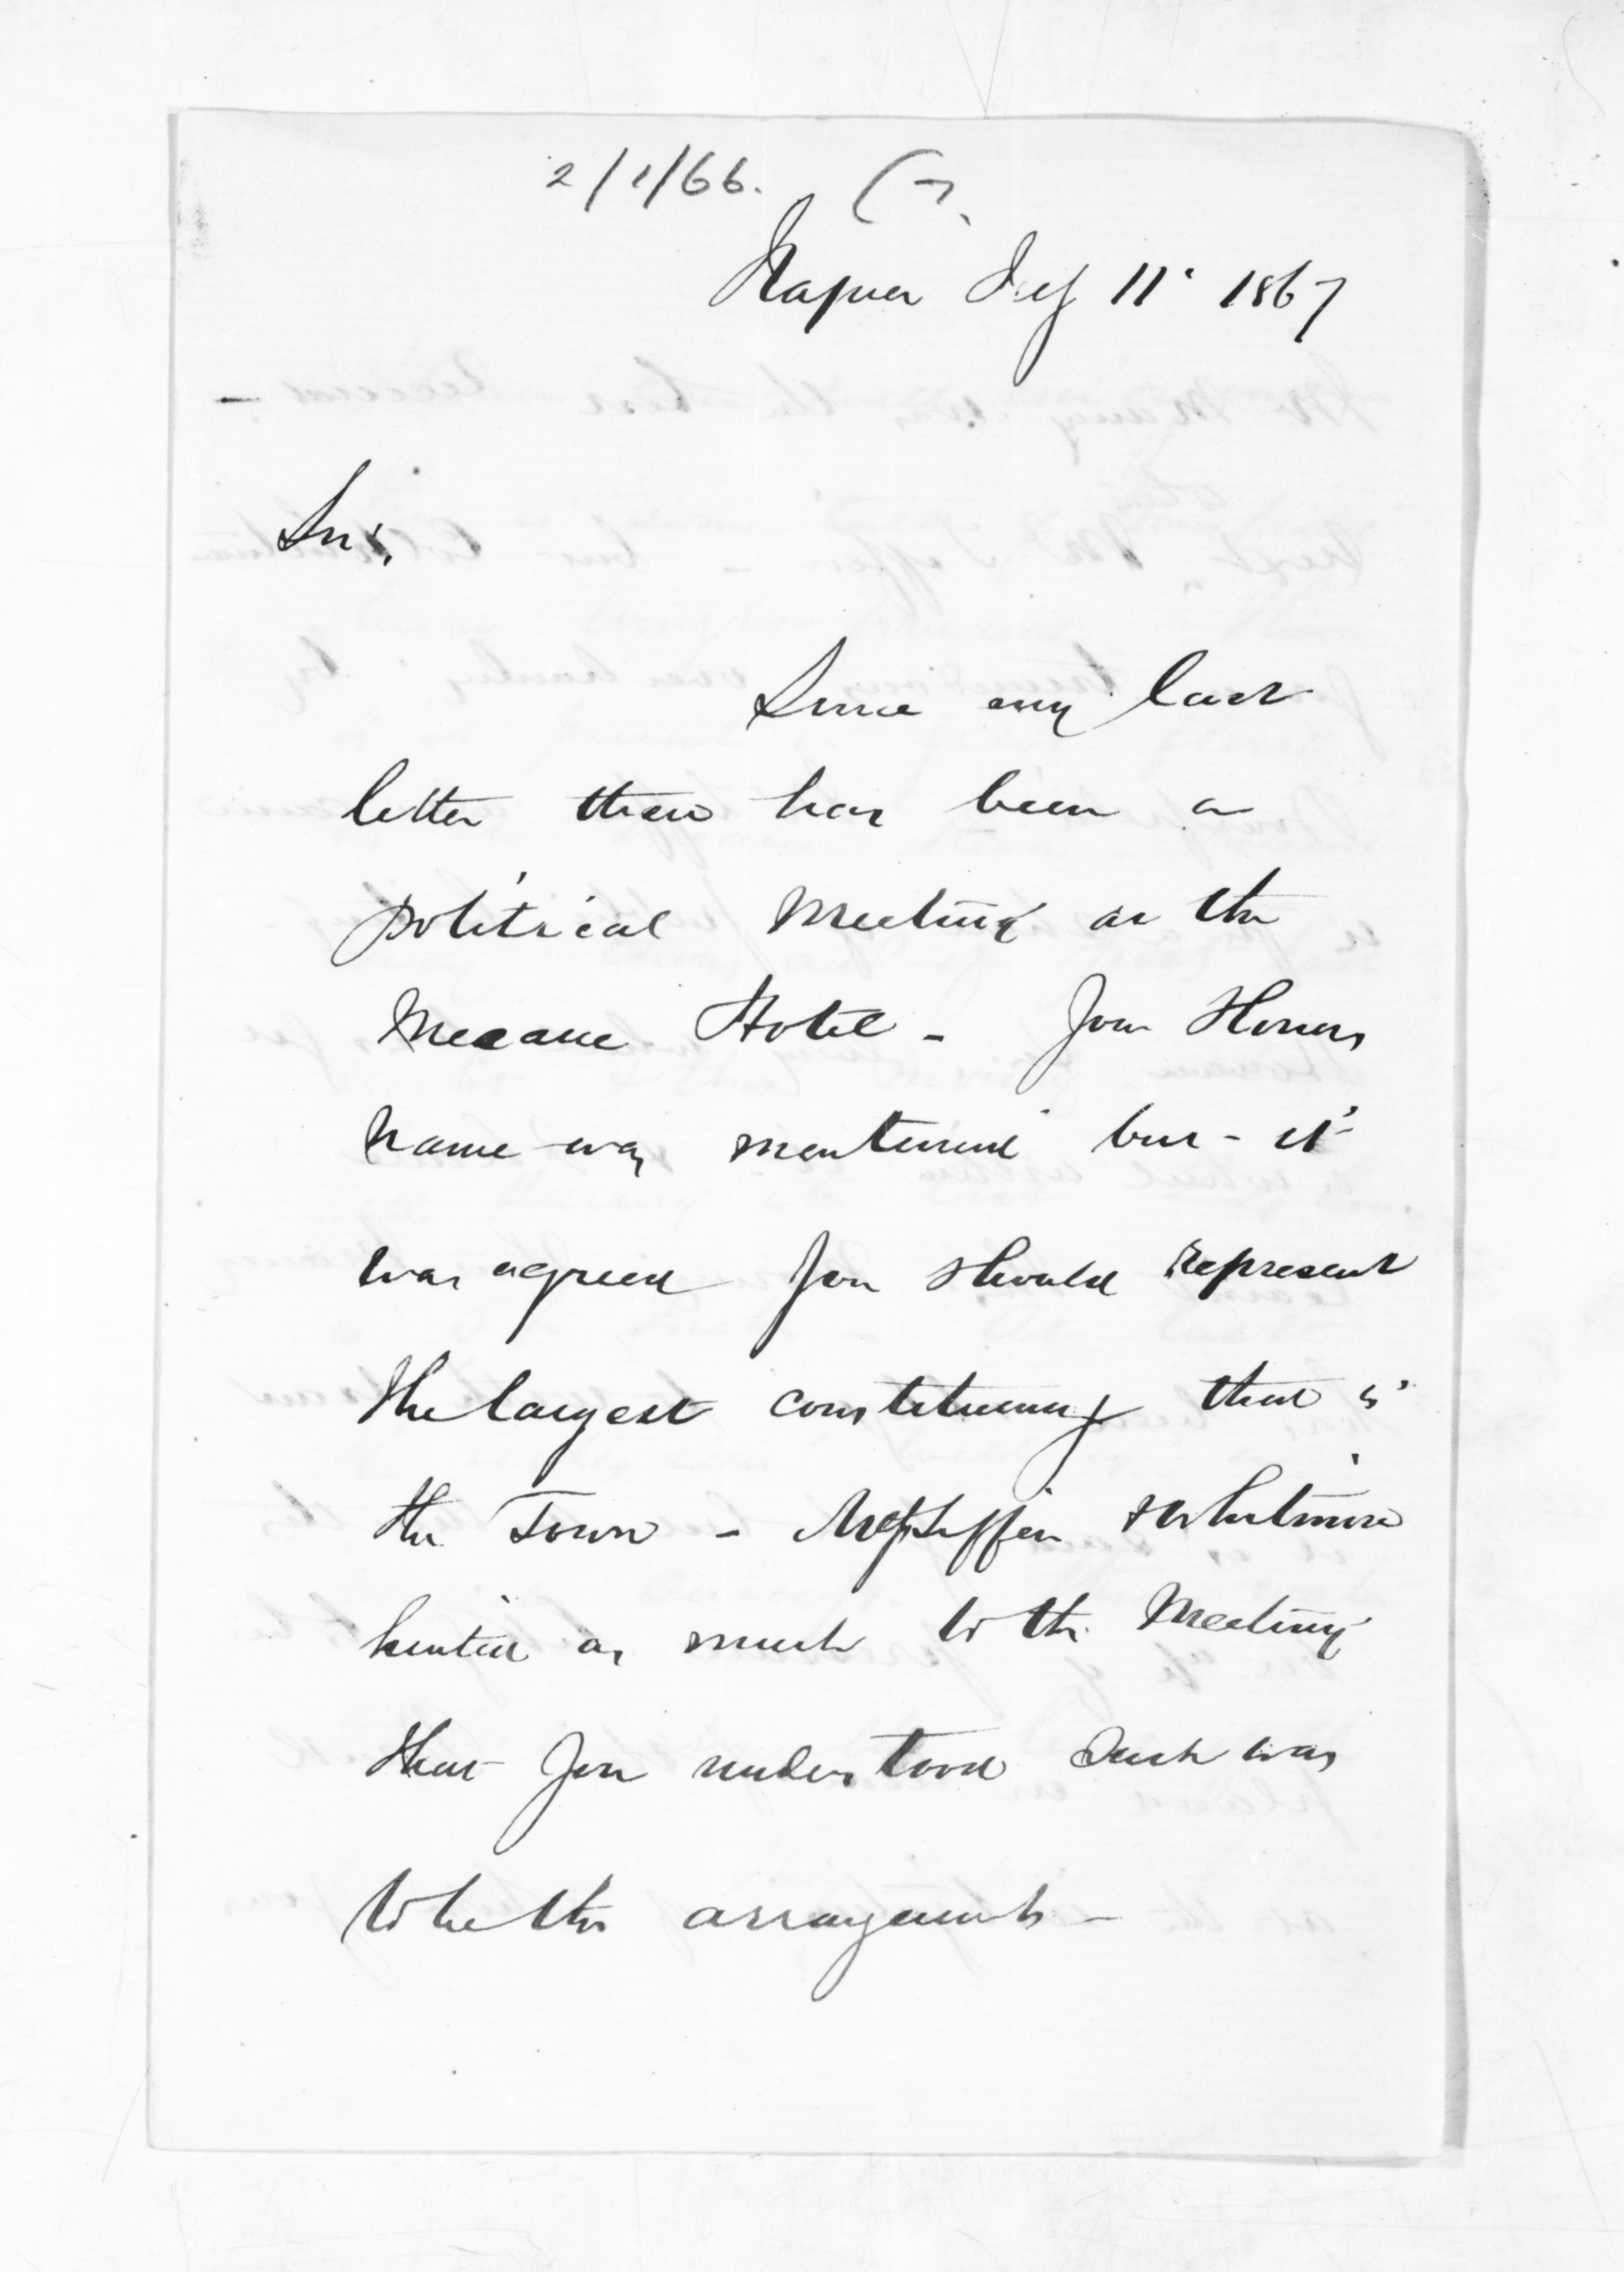 2/1/66. (7.
Napier July 11. 1867
Sir,
Since my last
letter there has been a
political Meeting at the
Meeanee Hotel - Your Honors
name was mentioned but - it
was agreed you should represent
the largest constituency that is
the Town - Tiffen & Whitmore
hinted as much to the Meeting
that you understood such was
to be the arrangements -